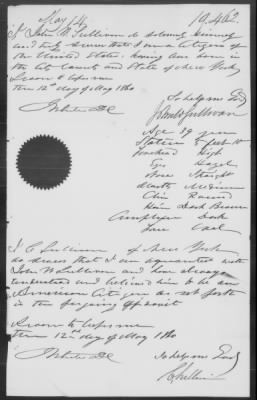 May 14 10,462.
I John W Sullivan do solemnly sincerely
and truly swear that I am a Citizen of
the United States, having been born in
the City County and State of New York
Sworn to before me
this 12th day of May 1860
So help me God
Age 19 years
Stature 5 feet 10
Forehead High
Eyes Hazel
Nose Straight
Mouth Medium
Chin Round
Hair Dark Brown
Complexion Dark
Face Oval
I C Sullivan of New York
do swear that I am acquainted with
John W Sullivan and have always
understood and believed him to be an
American Citizen as set forth
in the foregoing affidavit
Sworn to before me
this 12th day of May 1860
So help me God
C Sullivan